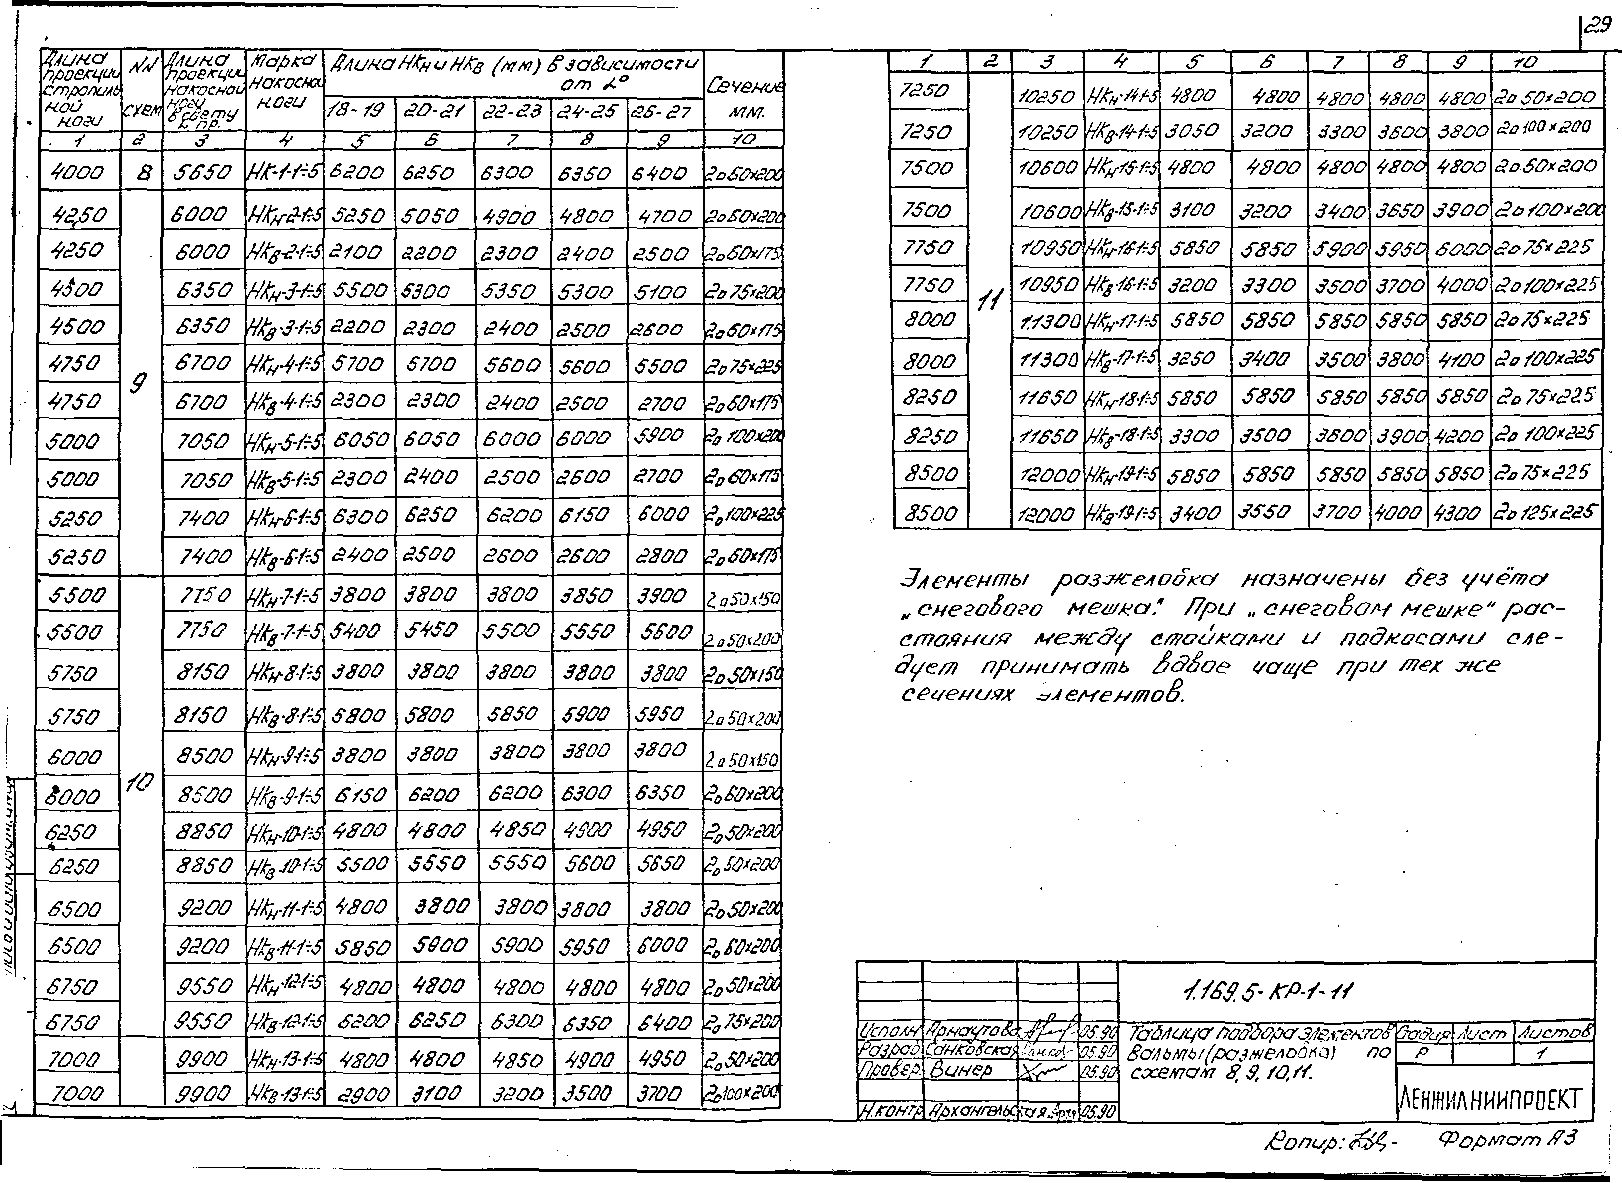 29
Длина проекции стропиль ной ноги | NN схем | Длина проекции накосной ногу в свету к пр. | Марка накосно ноги | Длина НКн и НКв (мм) в зависимости от α° | Сечение мм.
18-19 | 20-21 | 22-23 | 24-25 | 26-27
1 | 2 | 3 | 4 | 5 | 6 | 7 | 8 | 9 | 10
4000 | 8 | 5650 | НК-1-1÷5 | 6200 | 6250 | 6300 | 6350 | 6400 | 2д60х200
4250 | 9 | 6000 | НКн-2-1÷5 | 5250 | 5050 | 4900 | 4800 | 4700 | 2д60х200
4250 | 6000 | НКв-2-1÷5 | 2100 | 2200 | 2300 | 2400 | 2500 | 2д60х175
4500 | 6350 | НКн-3-1÷5 | 5500 | 5300 | 5350 | 5300 | 5100 | 2д75х200
4500 | 6350 | НКв-3-1÷5 | 2200 | 2300 | 2400 | 2500 | 2600 | 2д60х175
4750 | 6700 | НКн-4-1÷5 | 5700 | 5700 | 5600 | 5600 | 5500 | 2д75х225
4750 | 6700 | НКв-4-1÷5 | 2300 | 2300 | 2400 | 2500 | 2700 | 2д60х175
5000 | 7050 | НКн-5-1÷5 | 6050 | 6050 | 6000 | 6000 | 5900 | 2д100х200
5000 | 7050 | НКв-5-1÷5 | 2300 | 2400 | 2500 | 2600 | 2700 | 2д60х175
5250 | 7400 | НКн-6-1÷5 | 6300 | 6250 | 6200 | 6150 | 6000 | 2д100х225
5250 | 7400 | НКв-6-1÷5 | 2400 | 2500 | 2600 | 2600 | 2800 | 2д60х175
5500 | 10 | 7750 | НКн-7-1÷5 | 3800 | 3800 | 3800 | 3850 | 3900 | 2д50х150
5500 | 7750 | НКв-7-1÷5 | 5400 | 5450 | 5500 | 5550 | 5600 | 2д50х200
5750 | 8150 | НКн-8-1÷5 | 3800 | 3800 | 3800 | 3800 | 3800 | 2д50х150
5750 | 8150 | НКв-8-1÷5 | 5800 | 5800 | 5850 | 5900 | 5950 | 2д50х200
6000 | 8500 | НКн-9-1÷5 | 3800 | 3800 | 3800 | 3800 | 3800 | 2д50х150
6000 | 8500 | НКв-9-1÷5 | 6150 | 6200 | 6200 | 6300 | 6350 | 2д60х200
6250 | 8850 | НКн-10-1÷5 | 4800 | 4800 | 4850 | 4900 | 4950 | 2д50х200
6250 | 8850 | НКв-10-1÷5 | 5500 | 5550 | 5550 | 5600 | 5650 | 2д50х200
6500 | 9200 | НКн-11-1÷5 | 4800 | 3800 | 3800 | 3800 | 3800 | 2д50х200
6500 | 9200 | НКв-11-1÷5 | 5850 | 5900 | 5900 | 5950 | 6000 | 2д60х200
6750 | 9550 | НКн-12-1÷5 | 4800 | 4800 | 4800 | 4800 | 4800 | 2д50х200
6750 | 9550 | НКв-12-1÷5 | 6200 | 6250 | 6300 | 6350 | 6400 | 2д75х200
7000 | 9900 | НКн-13-1÷5 | 4800 | 4800 | 4850 | 4900 | 4950 | 2д50х200
7000 | 9900 | НКв-13-1÷5 | 2900 | 3100 | 3200 | 3500 | 3700 | 2д100х200
1 | 2 | 3 | 4 | 5 | 6 | 7 | 8 | 9 | 10
7250 | 11 | 10250 | НКн-14-1÷5 | 4800 | 4800 | 4800 | 4800 | 4800 | 2д50х200
7250 | 10250 | НКв-14-1÷5 | 3050 | 3200 | 3300 | 3600 | 3800 | 2д100х200
7500 | 10600 | НКн-15-1÷5 | 4800 | 4800 | 4800 | 4800 | 4800 | 2д50х200
7500 | 10600 | НКв-15-1÷5 | 3100 | 3200 | 3400 | 3650 | 3900 | 2д100х200
7750 | 10950 | НКн-16-1÷5 | 5850 | 5850 | 5900 | 5950 | 6000 | 2д75х225
7750 | 10950 | НКв-16-1÷5 | 3200 | 3300 | 3500 | 3700 | 4000 | 2д100х225
8000 | 11300 | НКн-17-1÷5 | 5850 | 5850 | 5850 | 5850 | 5850 | 2д75х225
8000 | 11300 | НКв-17-1÷5 | 3250 | 3400 | 3500 | 3800 | 4100 | 2д100х225
8250 | 11650 | НКн-18-1÷5 | 5850 | 5850 | 5850 | 5850 | 5850 | 2д75х225
8250 | 11650 | НКв-18-1÷5 | 3300 | 3500 | 3600 | 3900 | 4200 | 2д100х225
8500 | 12000 | НКн-19-1÷5 | 5850 | 5850 | 5850 | 5850 | 5850 | 2д75х225
8500 | 12000 | НКв-19-1÷5 | 3400 | 3550 | 3700 | 4000 | 4300 | 2д125х225
Элементы разжелобка назначены без учёта
„снегового мешка“. При „снеговом мешке“ рас-
стояния между стойками и подкосами сле-
дует принимать вдвое чаще при тех же
сечениях элементов.
1.169.5-КР-1-11
Исполн Арнаутова 05.90
Разраб Санковская 05.90
Провер Винер 05.90
Н.контр Архангельская 05.90
Таблица подбора элементов
вальмы (разжелобка) по
схемам 8, 9, 10, 11.
Стадия Лист Листов
Р 1
ЛЕНЖИЛНИИПРОЕКТ
Копир: Формат А3